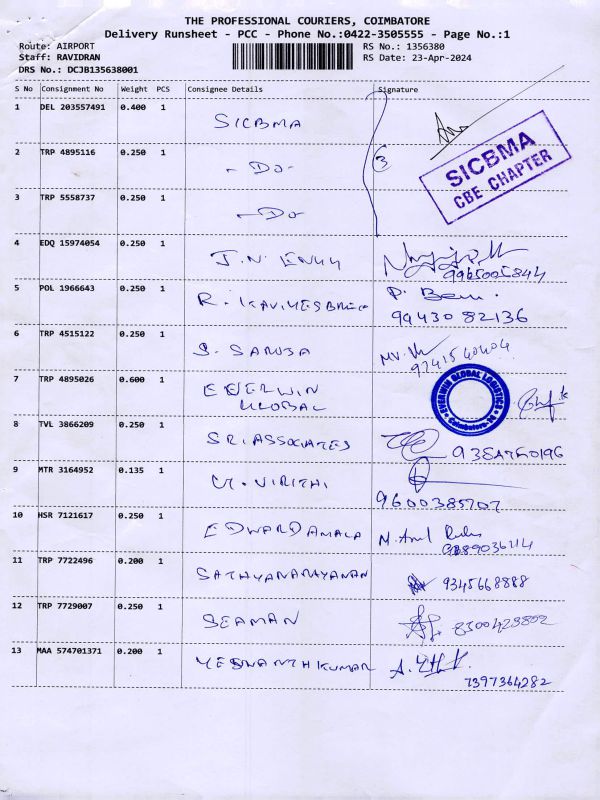 THE PROFESSIONAL COURIERS, COIMBATORE
Delivery Runsheet - PCC - Phone No.:0422-3505555 - Page No.:1
Route: AIRPORT RS No.: 1356380
Staff: RAVIDRAN RS Date: 23-Apr-2024
DRS No.: DCJB135638001
S No Consignment No Weight PCS Consignee Details Signature
1 DEL 203557491 0.400 1 SICBMA
SICBMA
CBE CHAPTER
2 TRP 4895116 0.250 1 - Do - 3
3 TRP 5558737 0.250 1 - Do -
4 EDQ 15974054 0.250 1 J.N.
5 POL 1966643 0.250 1 R. P.
94430 82136
6 TRP 4515122 0.250 1 S. SAROJA
7 TRP 4895026 0.600 1 EVERWIN
GLOBAL
EVERWIN GLOBAL LOGISTICS
Coimbatore
8 TVL 3866209 0.250 1 SRI ASSOCIATES
9 MTR 3164952 0.135 1
9600385707
10 HSR 7121617 0.250 1 EDWARD AMALA M.
11 TRP 7722496 0.200 1 SATHYANARAYANAN 9345668888
12 TRP 7729007 0.250 1 SEAMAN
13 MAA 574701371 0.200 1 YESWANTHKUMAR A.
7397364282